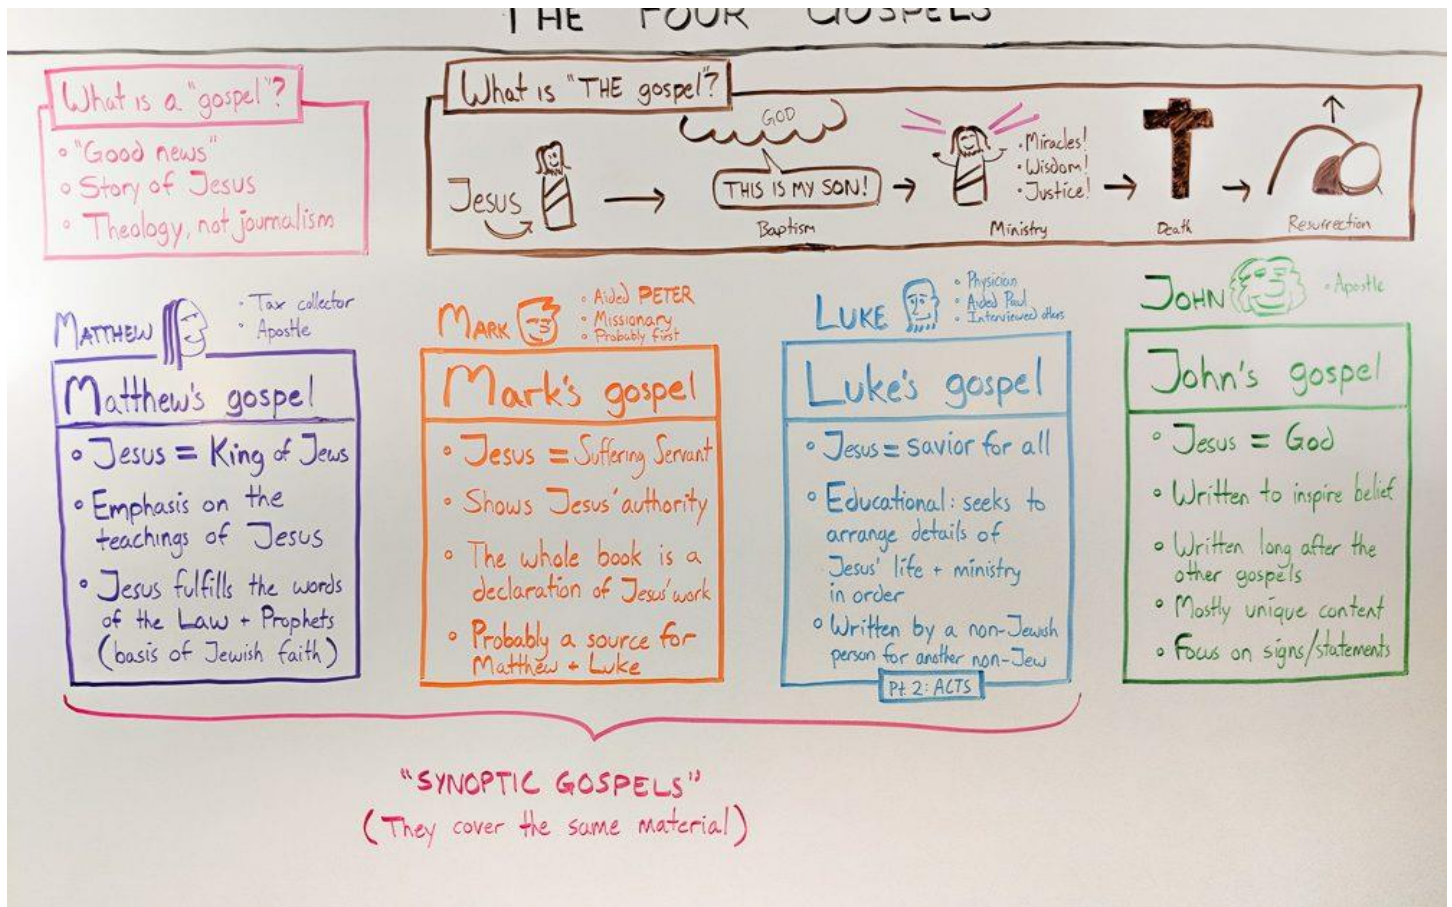 THE FOUR GOSPELS
What is a "gospel"?
• "Good news"
• Story of Jesus
• Theology, not journalism
What is "THE gospel"?
Jesus
GOD
THIS IS MY SON!
Baptism
• Miracles!
• Wisdom!
• Justice!
Ministry
Death
Resurrection
MATTHEW
• Tax collector
• Apostle
Matthew's gospel
• Jesus = King of Jews
• Emphasis on the
teachings of Jesus
• Jesus fulfills the words
of the Law + Prophets
(basis of Jewish faith)
MARK
• Aided PETER
• Missionary
• Probably first
Mark's gospel
• Jesus = Suffering Servant
• Shows Jesus' authority
• The whole book is a
declaration of Jesus' work
• Probably a source for
Matthew + Luke
LUKE
• Physician
• Aided Paul
• Interviewed others
Luke's gospel
• Jesus = Savior for all
• Educational: seeks to
arrange details of
Jesus' life + ministry
in order
• Written by a non-Jewish
person for another non-Jew
Pt. 2: ACTS
JOHN
• Apostle
John's gospel
• Jesus = God
• Written to inspire belief
• Written long after the
other gospels
• Mostly unique content
• Focus on signs/statements
"SYNOPTIC GOSPELS"
(They cover the same material)